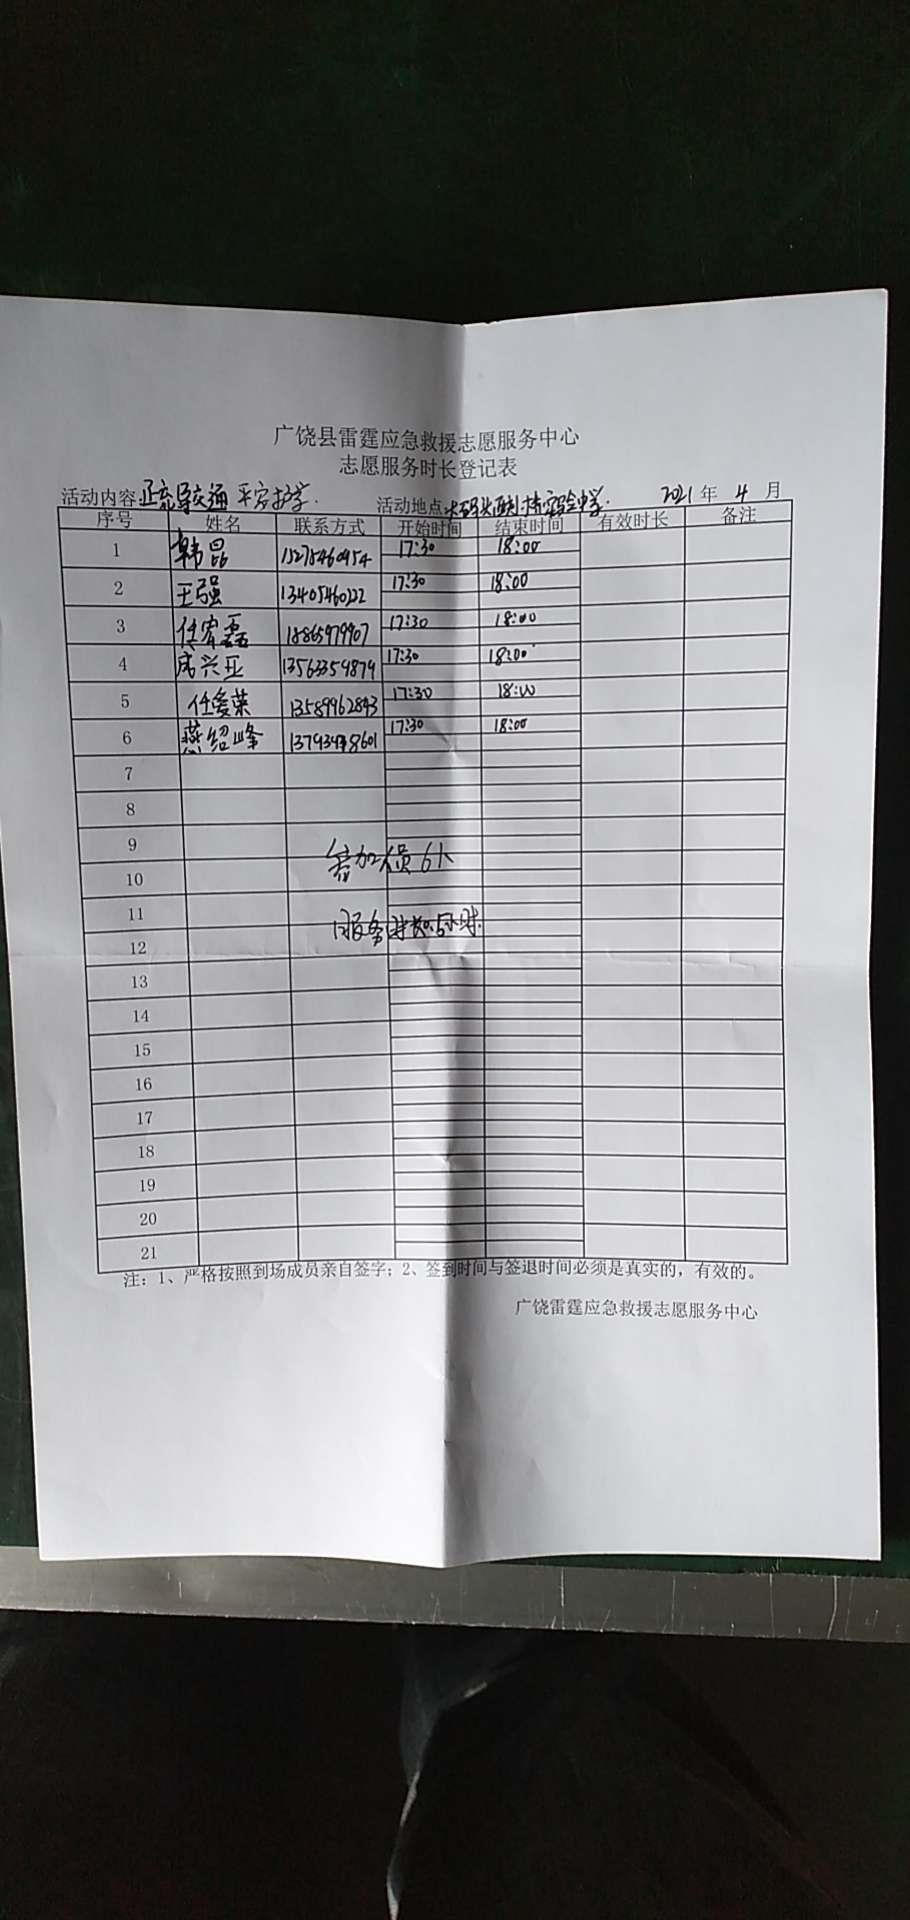 广饶县雷霆应急救援志愿服务中心
志愿服务时长登记表
活动内容 疏导交通 平安护学. 活动地点 大码头 实验中学. 2021年 4 月
序号 姓名 联系方式 开始时间 结束时间 有效时长 备注
1 韩昆 15275460954 17:30 18:00
2 王强 13405460222 17:30 18:00
3 任宏磊 18865979907 17:30 18:00
4 成兴亚 13563359879 17:30 18:00
5 任爱荣 13589962893 17:30 18:00
6 燕绍峰 17:30 18:00
7
8
9
参加人员6人
10
11
服务时长0.5小时.
12
13
14
15
16
17
18
19
20
21
注：1、严格按照到场成员亲自签字；2、签到时间与签退时间必须是真实的，有效的。
广饶雷霆应急救援志愿服务中心